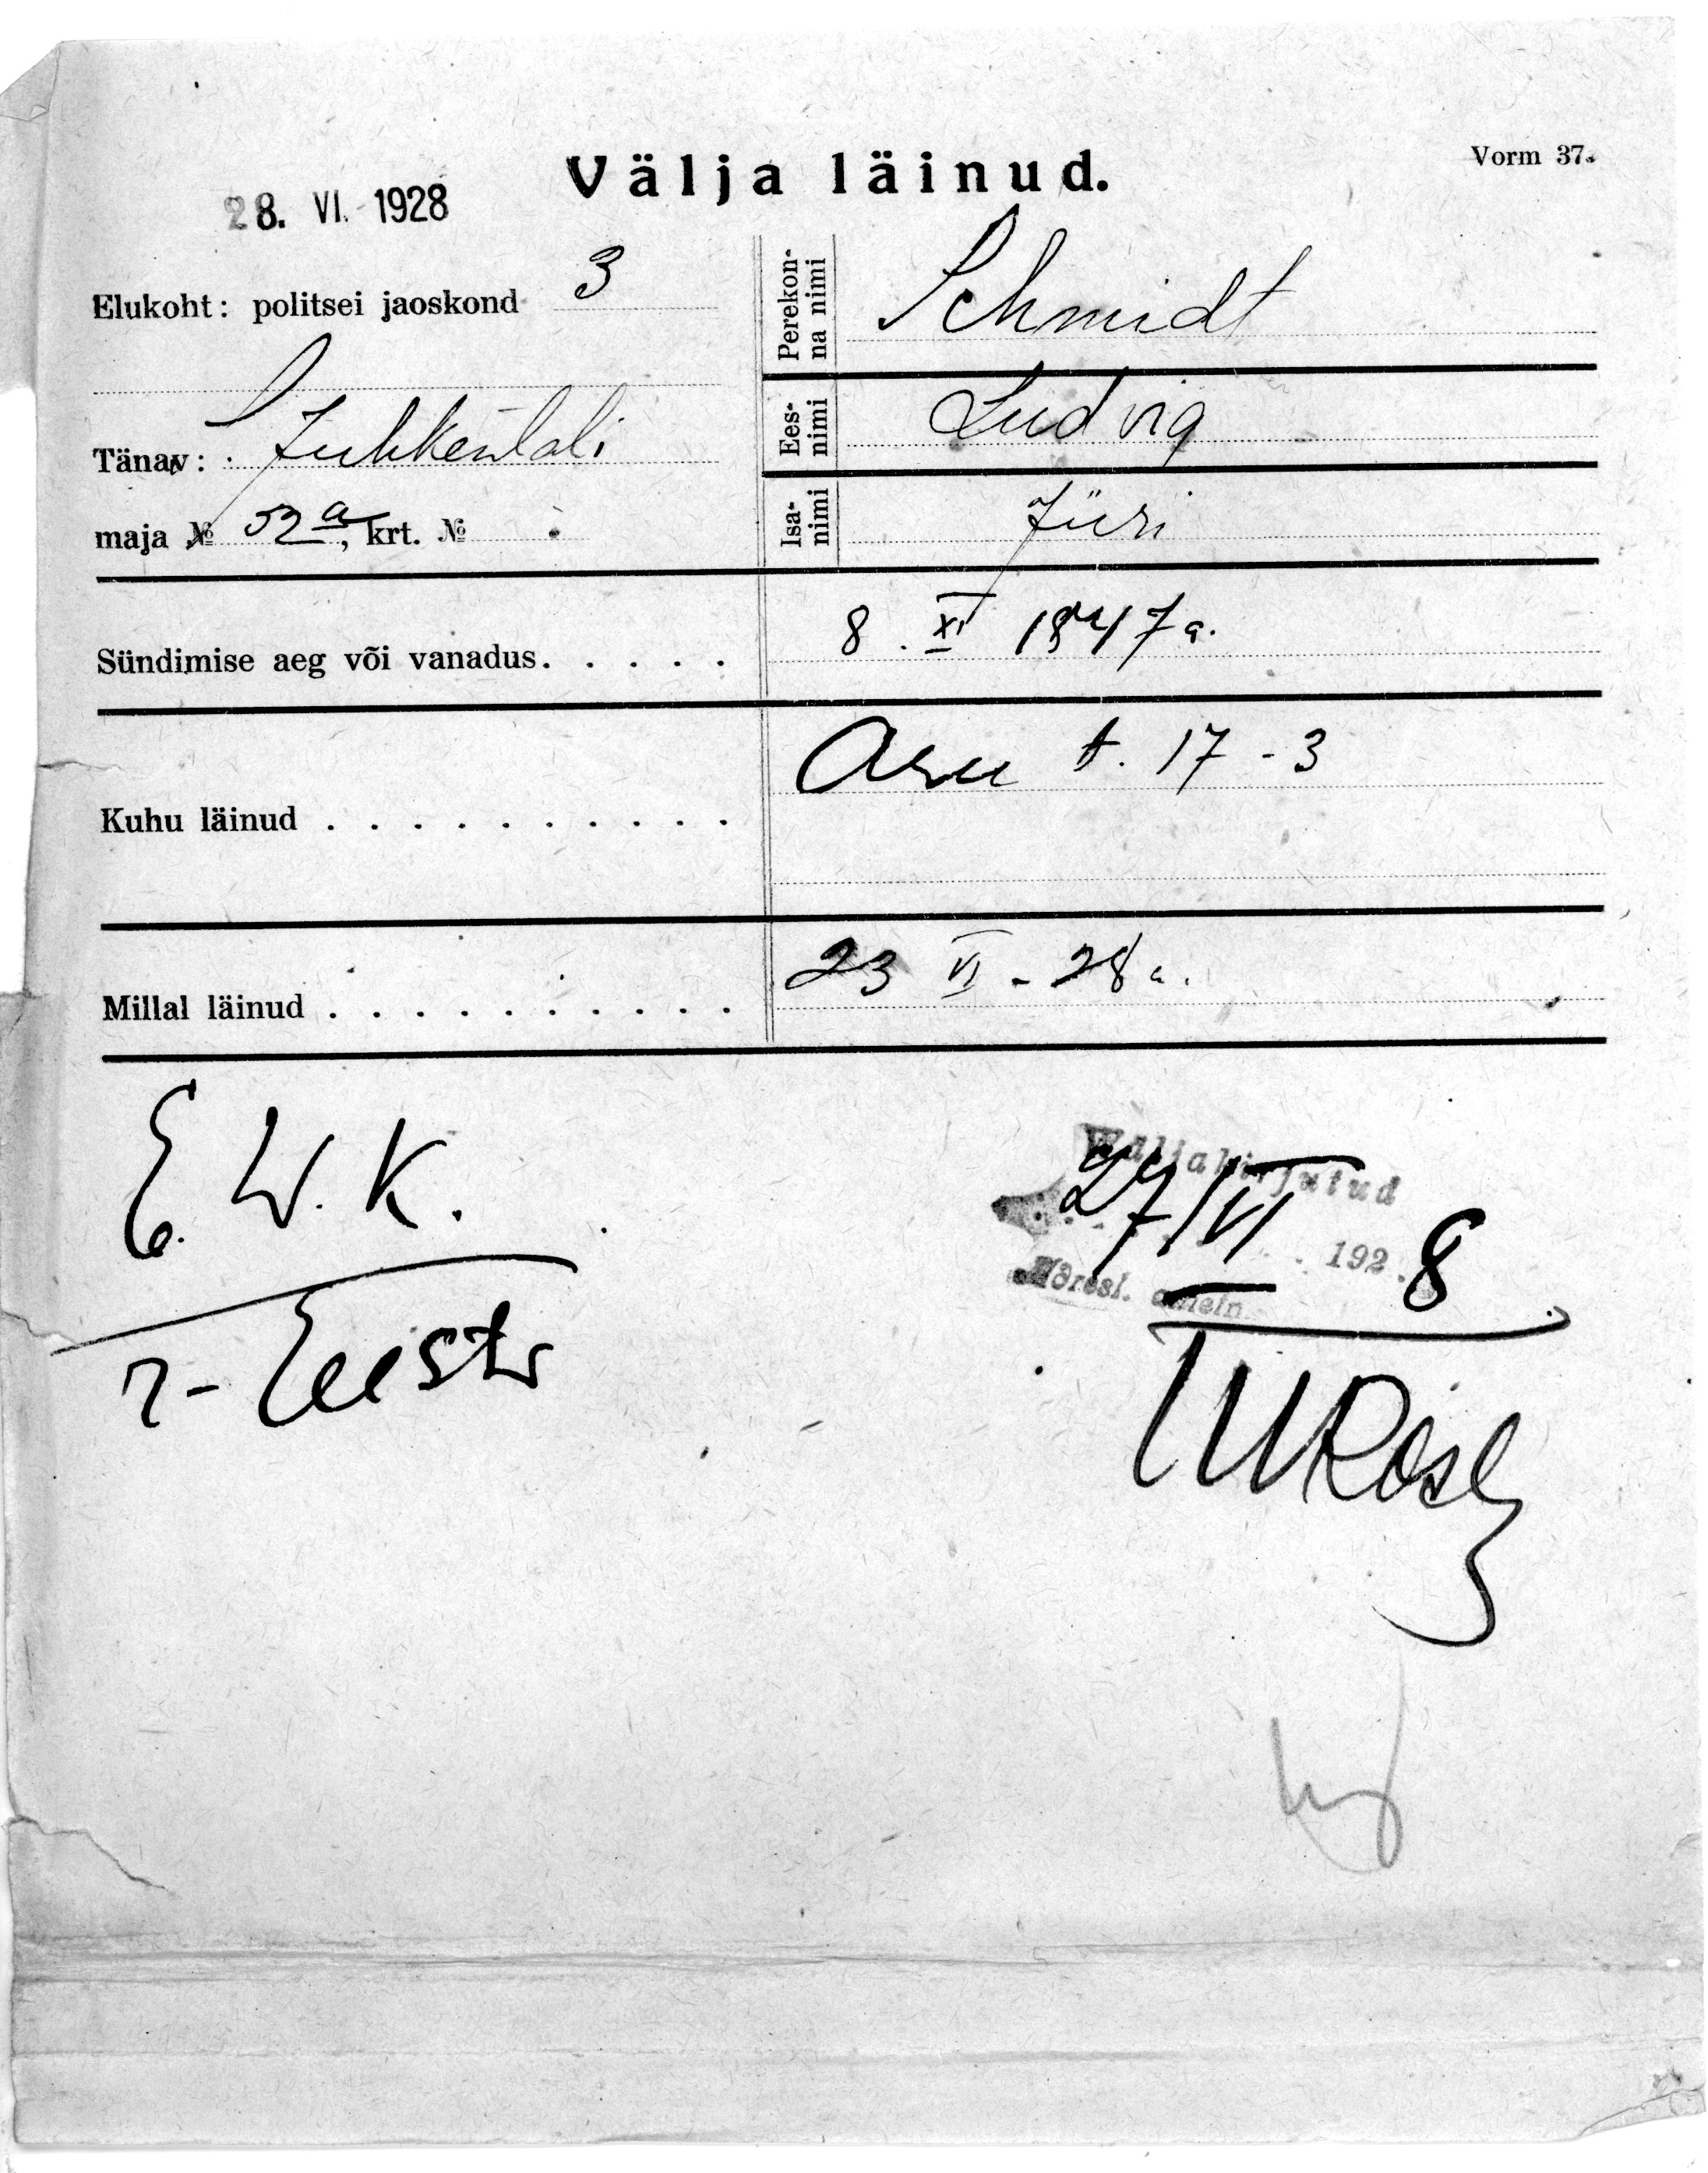 Välja läinud.
Vorm 37.
28. VI. 1928
Elukoht: politsei jaoskond 3
Tänav: Juhkentali
maja № 52 a, krt. №
Perekonna nimi Schmidt
Eesnimi Ludvig
Isanimi Jüri
Sündimise aeg või vanadus. . . . . 8. XI 1847 a.
Kuhu läinud . . . . . . . . . . Asu t. 17 - 3
Millal läinud . . . . . . . . . . 23 VI - 28 a.
E. W. K.
r - Eestr
Väljakirjutud
27/VI 1928